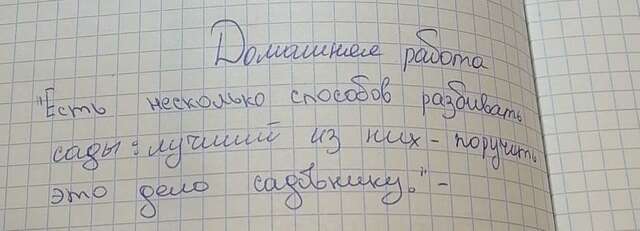 Домашнее работа
"Есть несколько способов разбивать
сады: лучший из них - поручить
это дело садовнику." -